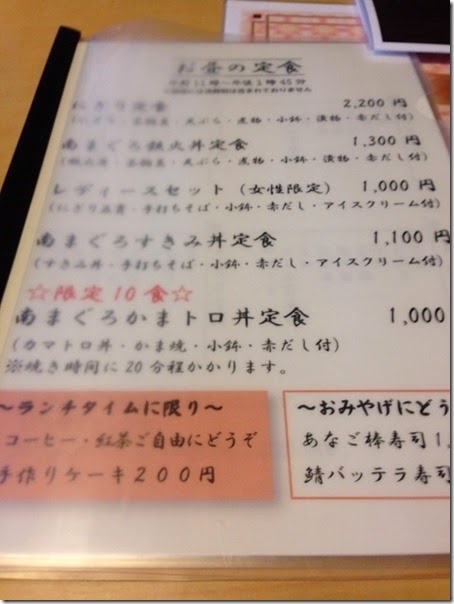 お昼の定食
午前11時〜午後1時45分
にぎり定食 2,200円
・茶碗蒸・天ぷら・煮物・小鉢・漬物・赤だし付)
南まぐろ鉄火丼定食 1,300円
・茶碗蒸・天ぷら・煮物・小鉢・漬物・赤だし付)
レディースセット(女性限定) 1,000円
(にぎり五貫・手打ちそば・小鉢・赤だし・アイスクリーム付)
南まぐろすきみ丼定食 1,100円
(すきみ丼・手打ちそば・小鉢・赤だし・アイスクリーム付)
☆限定10食☆
南まぐろかまトロ丼定食 1,000
(カマトロ丼・かま焼・小鉢・赤だし付)
※焼き時間に20分程かかります。
〜ランチタイムに限り〜
コーヒー・紅茶ご自由にどうぞ
手作りケーキ200円
〜おみやげにどう
あなご棒寿司1,
鯖バッテラ寿司